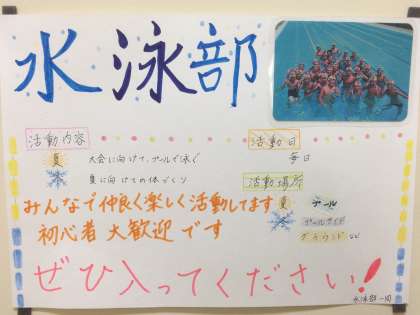 水泳部
活動内容
夏 大会に向けて、プールで泳ぐ
夏に向けての体づくり
活動日
毎日
活動場所
夏 プール
プールサイド
グラウンド など
みんなで仲良く楽しく活動してます
初心者 大歓迎 です
ぜひ入ってください!
水泳部一同